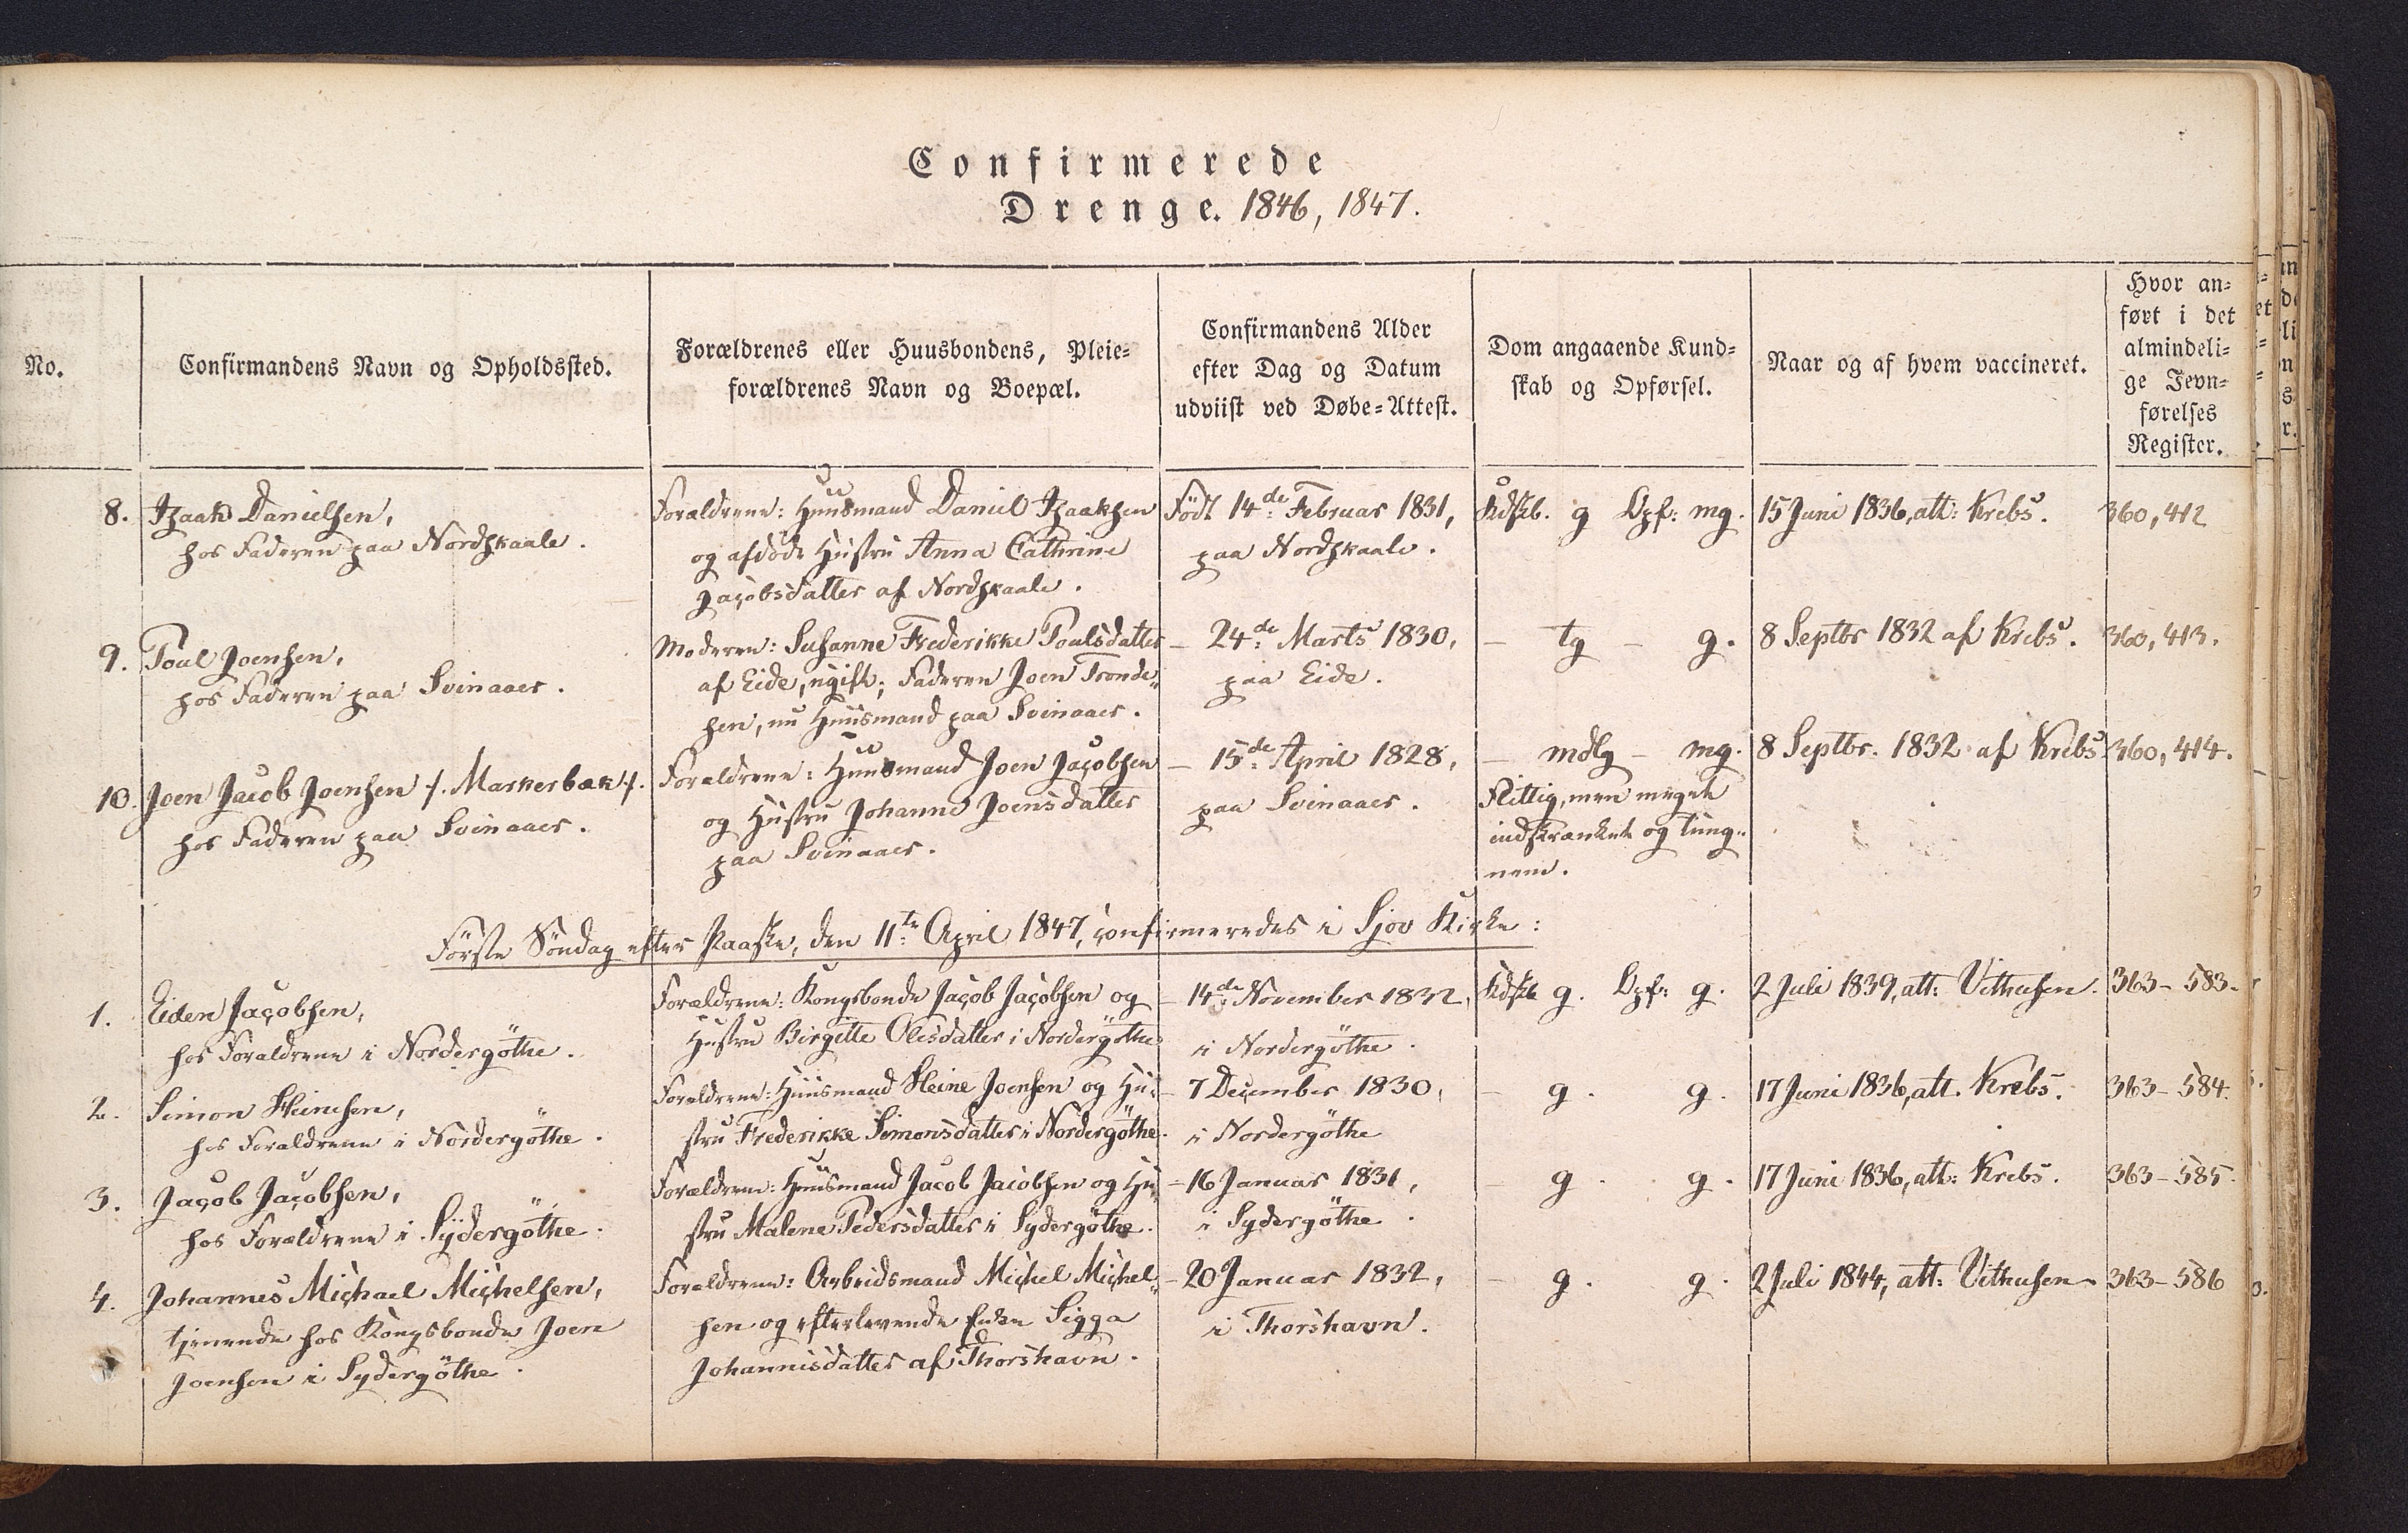 Confirmerede
Drenge. 1846, 1847.
No.
Confirmandens Navn og Opholdssted.
Forældrenes eller Huusbondens, Pleie=
forældrenes Navn og Boepæl.
Confirmandens Alder
efter Dag og Datum
udviist ved Døbe=Attest.
Dom angaaende Kund=
skab og Opførsel.
Naar og af hvem vaccineret.
Hvor an=
ført i det
almindeli=
ge Jevn=
førelses
Register.
8.
Isaak Danielsen,
hos Faderen paa Nordskaale.
Forældrene: Huusmand Daniel Isaaksen
og afdöde Hustru Anna Cathrine
Jacobsdatter af Nordskaale.
Födt 14de Februar 1831,
paa Nordskaale.
Kdskb. g Opf: mg.
15 Juni 1836, att: Krebs.
360, 412
9.
Poul Joensen,
hos Faderen paa Svinaaer.
Moderen: Susanne Frederikke Poulsdatter
af Eide, ugift; Faderen Joen Tronde-
sen, nu Huusmand paa Svinaaer.
- 24de Marts 1830,
paa Eide.
- tg - g.
8 Septbr 1832 af Krebs.
360, 413.
10.
Joen Jacob Joensen /. Markerbæk /.
hos Faderen paa Svinaaer.
Forældrene: Huusmand Joen Jacobsen
og Hustru Johanne Joensdatter
paa Svinaaer.
- 15de April 1828,
paa Svinaaer.
- mdlg - mg.
Flittig, men meget
indskrænket og tung-
nem.
8 Septbr. 1832 af Krebs
360, 414.
Förste Söndag efter Paaske, den 11te April 1847, confirmeredes i Sjov Kirke:
1.
Eiden Jacobsen,
hos Forældrene i Nordergöthe.
Forældrene: Kongsbonde Jacob Jacobsen og
Hustru Birgitte Olesdatter i Nordergöthe
- 14de November 1832,
i Nordergöthe.
Kdskb g. Opf: g.
2 Juli 1839, att: Vithusen.
363 - 583.
2.
Simon Heinesen,
hos Forældrene i Nordergöthe.
Forældrene: Huusmand Heine Joensen og Hu-
stru Frederikke Simonsdatter i Nordergöthe.
- 7 December 1830,
i Nordergöthe
- g. g.
17 Juni 1836, att. Krebs.
363 - 584.
3.
Jacob Jacobsen,
hos Forældrene i Sydergöthe.
Forældrene: Huusmand Jacob Jacobsen og Hu-
stru Malene Pedersdatter i Sydergöthe.
- 16 Januar 1831,
i Sydergöthe.
- g. g.
17 Juni 1836, att: Krebs.
363 - 585.
4.
Johannes Michael Michelsen,
tjenende hos Kongsbonde Joen
Joensen i Sydergöthe.
Forældrene: Arbeidsmand Michel Michel-
sen og efterlevende Enke Sigga
Johannisdatter af Thorshavn.
- 20 Januar 1832,
i Thorshavn.
- g. g.
2 Juli 1844, att: Vithusen
363 - 586